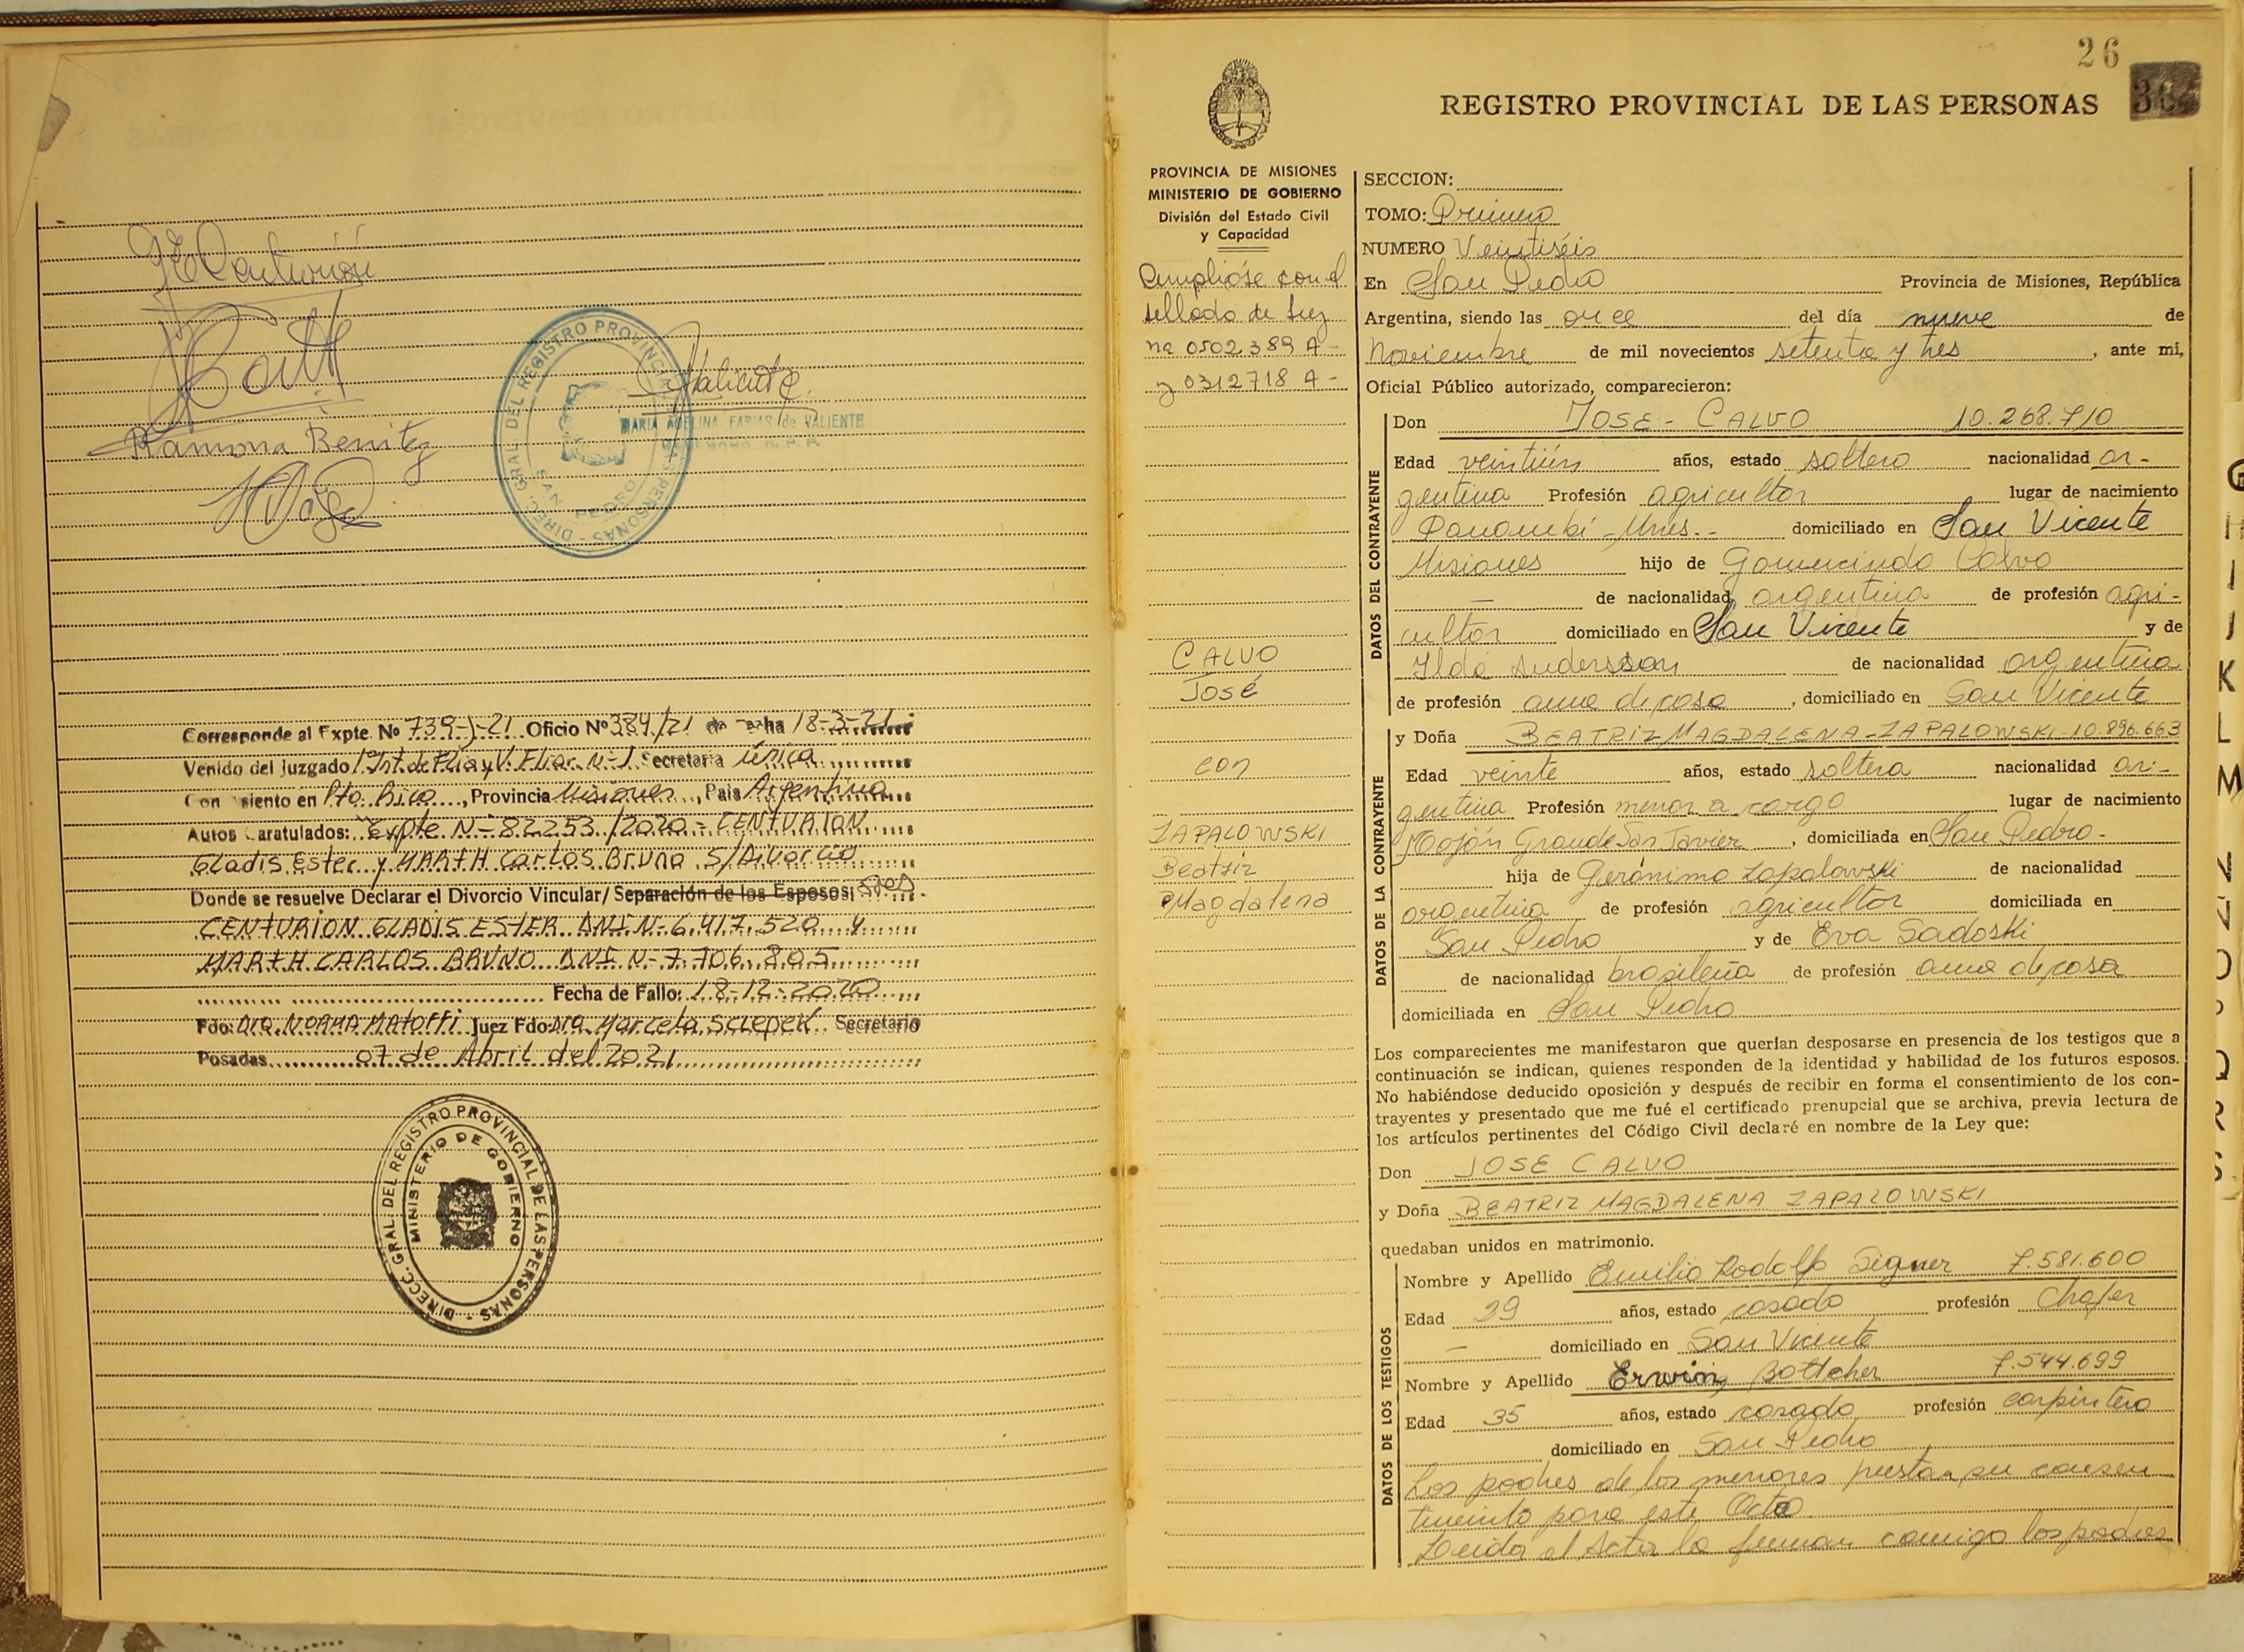 JECenturión
Ramona Benitez
DIREC. GRAL. DEL REGISTRO PROVINCIAL DE LAS PERSONAS -
SAN PEDRO
MARIA ADELINA FARIAS de VALIENTE
DELEGADA R. P. P.
Corresponde al Expte. Nº 739-J-21 Oficio Nº 384/21 de fecha 18-3-21
Venido del Juzgado 1º Inst. de Flia y V. Fliar N-1 Secretaria única
Con asiento en Pto. Rico, Provincia Misiones, Pais Argentina
Autos Caratulados: "Expte N-82253/2020-CENTURION
Gladis Ester y MARTH Carlos Bruno S/Divorcio
Donde se resuelve Declarar el Divorcio Vincular/Separación de los Esposos: Sres
CENTURION GLADIS ESTER DNI N-6.417.520 y
MARTH CARLOS BRUNO DNI N-7.706.805
Fecha de Fallo: 18-12-2020
Fdo: Dra. NORMA MATOFFI Juez Fdo: Dra. Marcela Sclepek Secretario
Posadas 07 de Abril del 2021
DIRECC. GRAL. DEL REGISTRO PROVINCIAL DE LAS PERSONAS -
MINISTERIO DE GOBIERNO
26
REGISTRO PROVINCIAL DE LAS PERSONAS
PROVINCIA DE MISIONES
MINISTERIO DE GOBIERNO
División del Estado Civil
y Capacidad
Cumplióse con el
sellado de Ley
nº 0502389 A-
y 0312718 A-
CALVO
José
con
ZAPALOWSKI
Beatriz
Magdalena
SECCION:
TOMO: Primero
NUMERO Veintiséis
En San Pedro Provincia de Misiones, República
Argentina, siendo las once del día nueve de
Noviembre de mil novecientos setenta y tres, ante mi,
Oficial Público autorizado, comparecieron:
DATOS DEL CONTRAYENTE
Don JOSE - CALVO 10.268.710
Edad veintiún años, estado soltero nacionalidad ar-
gentina Profesión agricultor lugar de nacimiento
Panambí - Mnes.- domiciliado en San Vicente
Misiones hijo de Gomercindo Calvo
— de nacionalidad argentina de profesión agri-
cultor domiciliado en San Vicente y de
Ilda Anderson de nacionalidad argentina
de profesión ama de casa, domiciliado en San Vicente
DATOS DE LA CONTRAYENTE
y Doña BEATRIZ MAGDALENA - ZAPALOWSKI-10.896.663
Edad veinte años, estado soltera nacionalidad ar-
gentina Profesión menor a cargo lugar de nacimiento
Mojón Grande San Javier, domiciliada en San Pedro-
hija de Gerónimo Zapalowski de nacionalidad
argentina de profesión agricultor domiciliada en
San Pedro y de Eva Sadoski
de nacionalidad brasileña de profesión ama de casa
domiciliada en San Pedro
Los comparecientes me manifestaron que querían desposarse en presencia de los testigos que a
continuación se indican, quienes responden de la identidad y habilidad de los futuros esposos.
No habiéndose deducido oposición y después de recibir en forma el consentimiento de los con-
trayentes y presentado que me fué el certificado prenupcial que se archiva, previa lectura de
los artículos pertinentes del Código Civil declaré en nombre de la Ley que:
Don JOSE CALVO
y Doña BEATRIZ MAGDALENA ZAPALOWSKI
quedaban unidos en matrimonio.
DATOS DE LOS TESTIGOS
Nombre y Apellido Emilio Rodolfo Signer 7.581.600
Edad 29 años, estado casado profesión Chofer
— domiciliado en San Vicente
Nombre y Apellido Erwin Bottcher 7.544.699
Edad 35 años, estado casado profesión carpintero
domiciliado en San Pedro
Los padres de los menores prestan su consen
timiento para este Acto
Leida el Acta la firman conmigo los padres